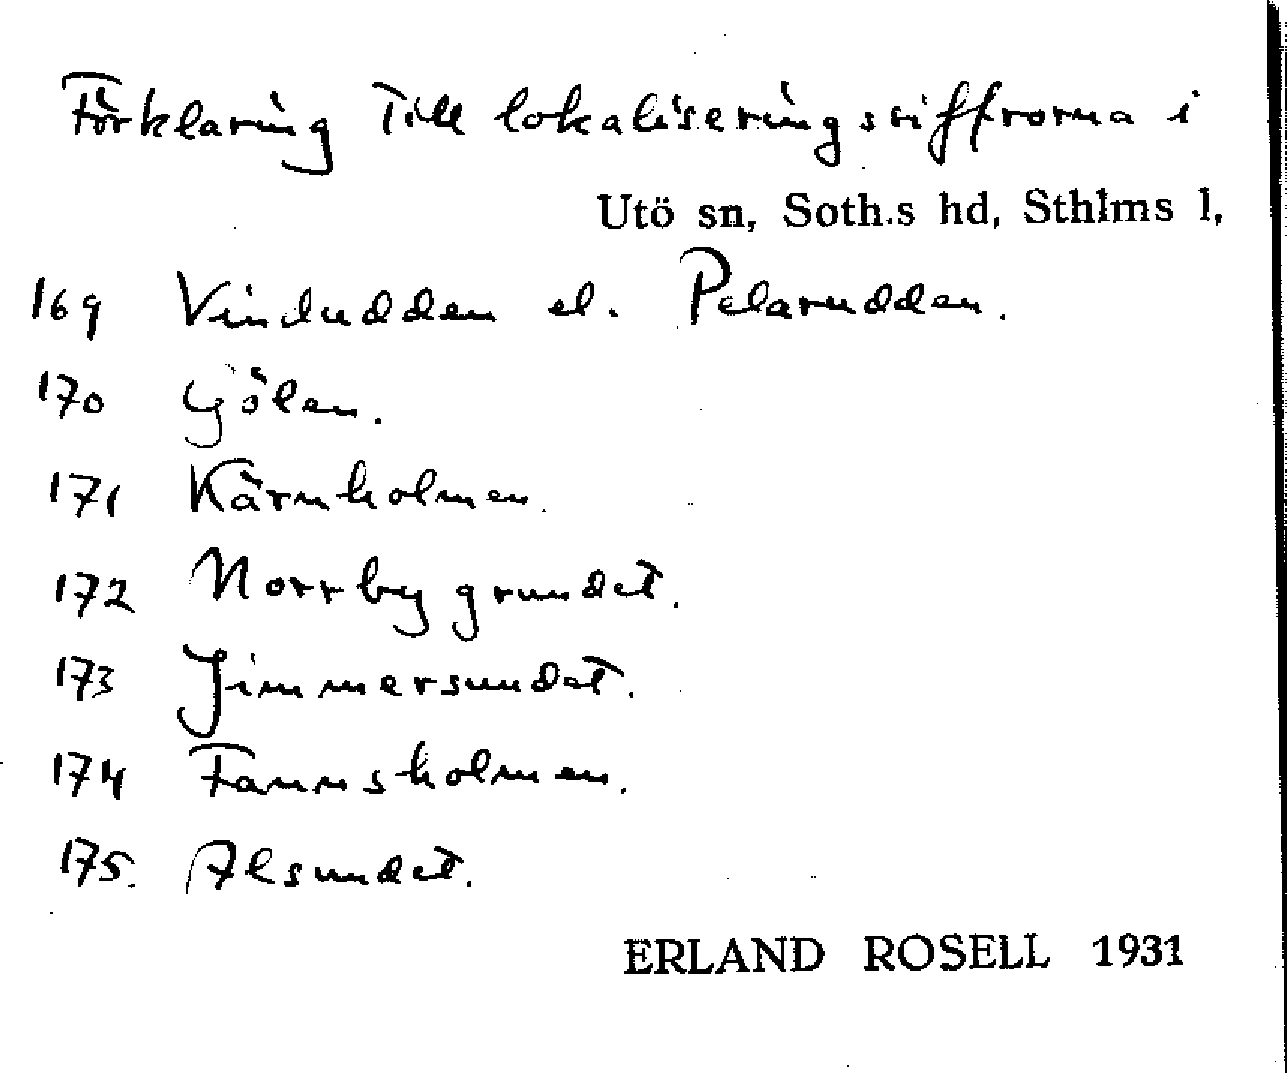 Förklaring till lokaliseringssiffrorna i
Utö sn, Soth.s hd, Sthlms l,
169 Vindudden el. Pelarudden.
170 Gölen.
171 Kärnholmen.
172 Norrby grundet.
173 Jimmersundet.
174 Fannsholmen.
175. Alsundet.
ERLAND ROSELL 1931